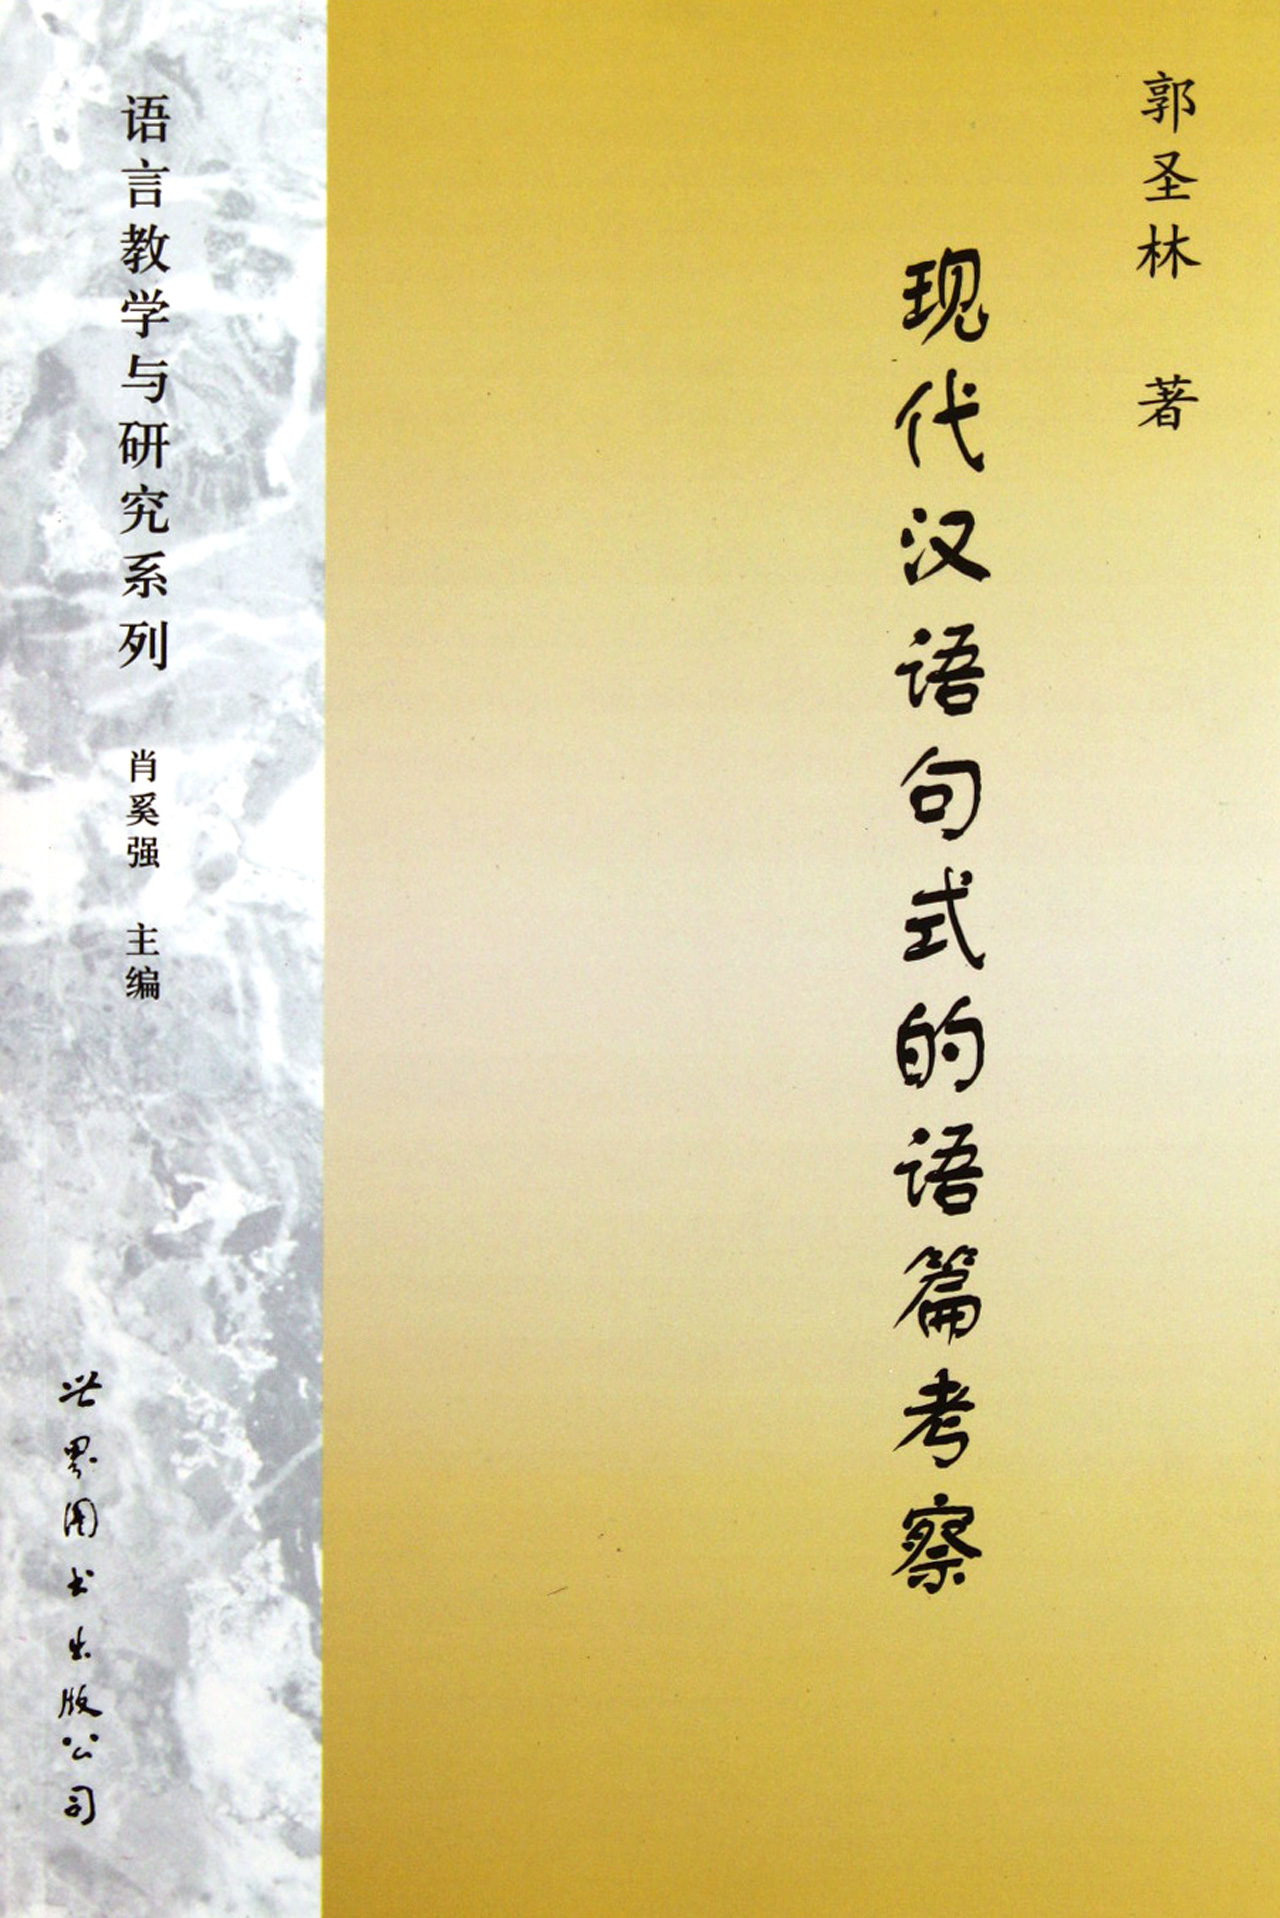 郭圣林 著
现代汉语句式的语篇考察
语言教学与研究系列 肖奚强 主编
世界图书出版公司